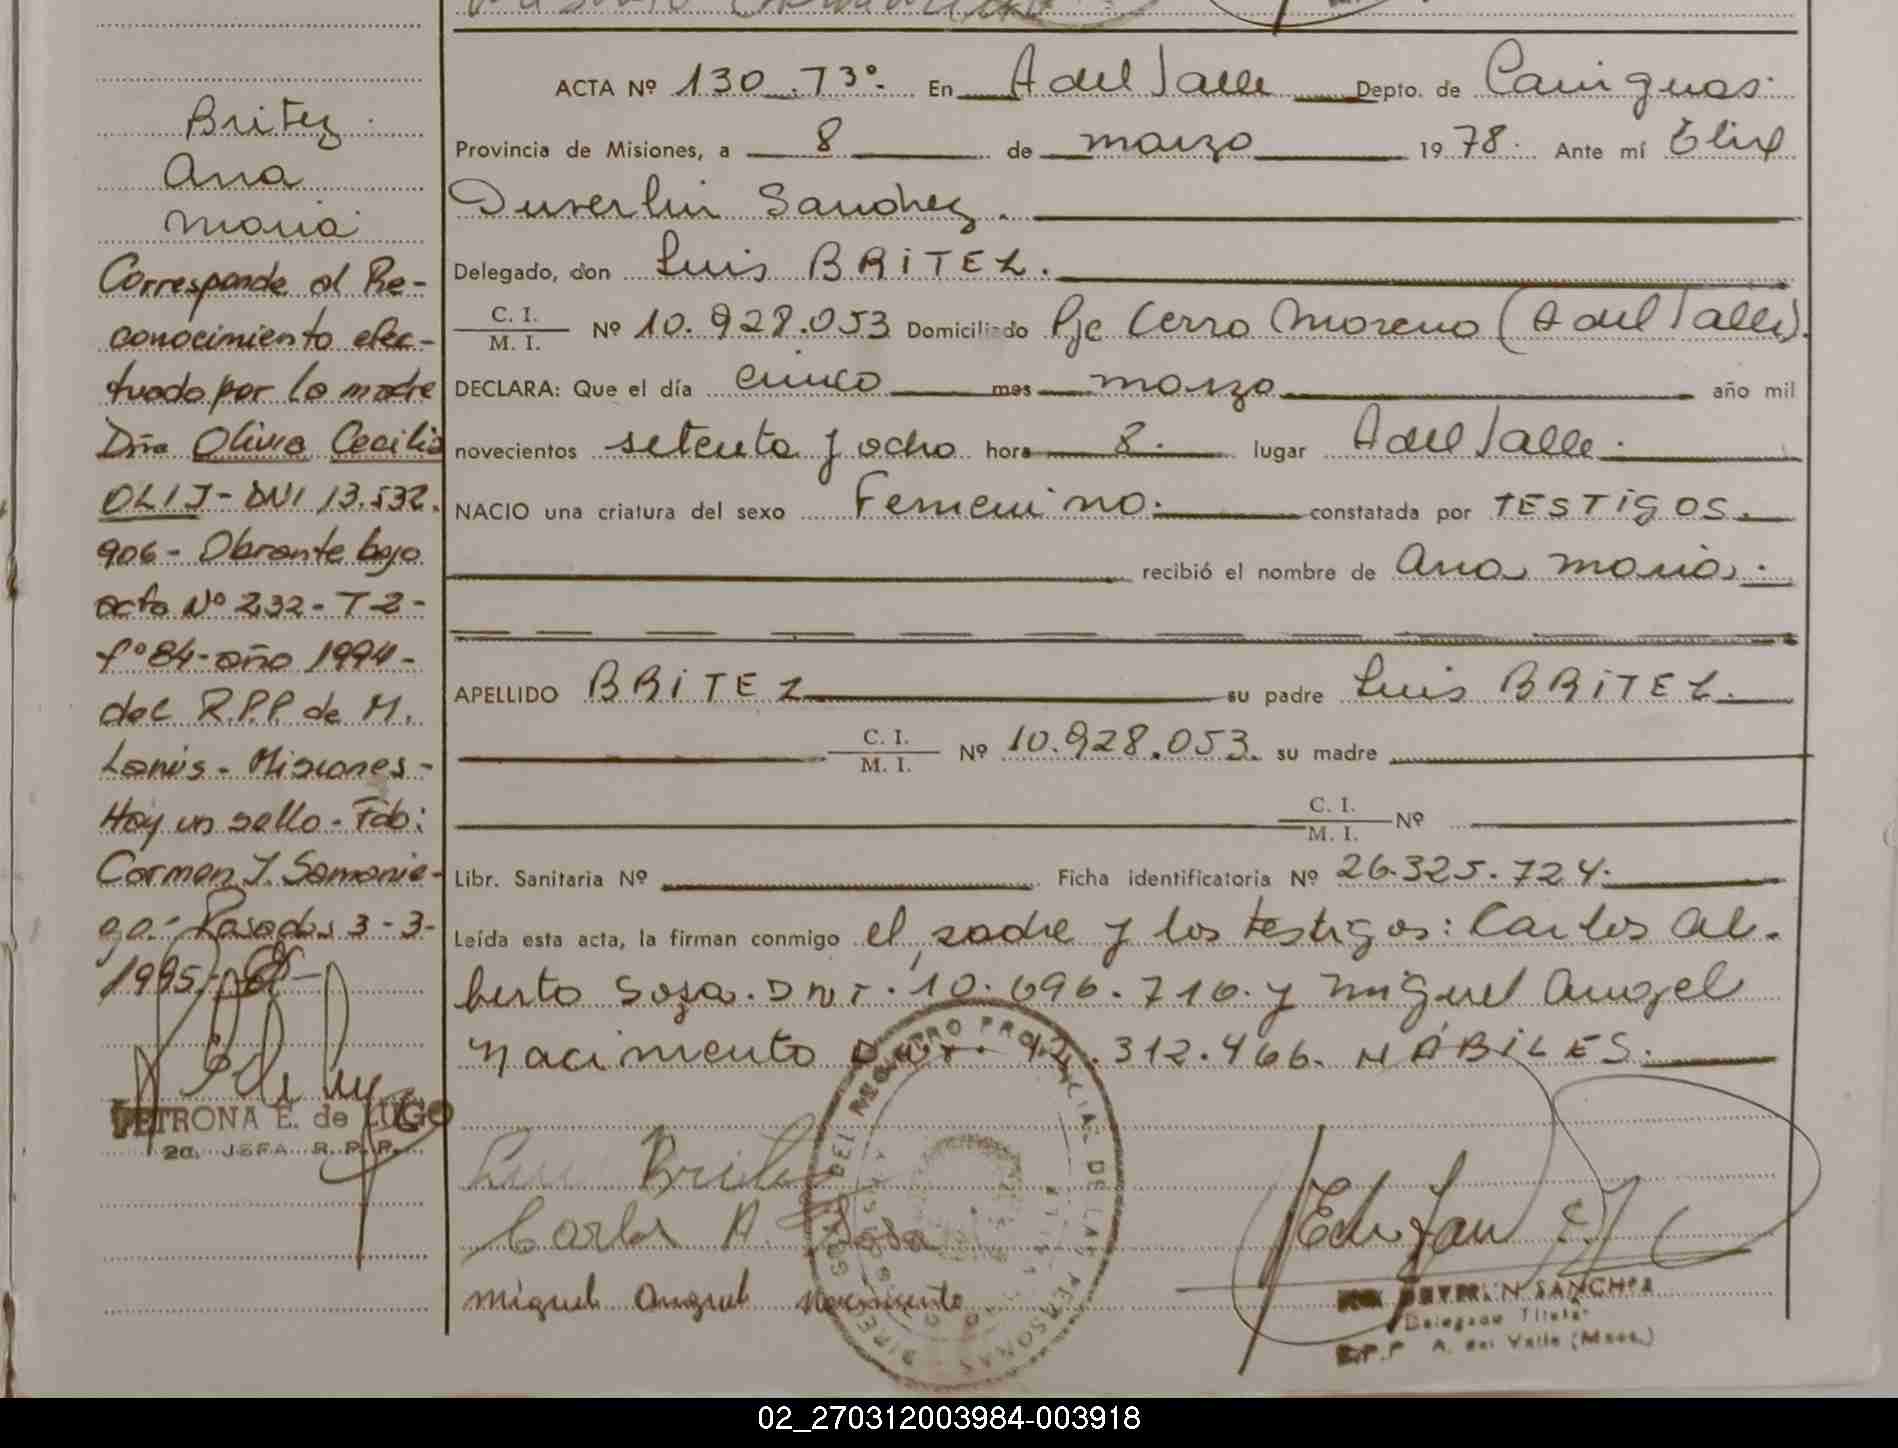 Britez
Ana
Maria
Corresponde al Re-
conocimiento efec-
tuado por la madre
Dña Oliva Cecilia
OLIJ - DNI 13.532.
906 - Obrante bajo
acta Nº 232 - T 2 -
fº 84 - año 1994 -
del R.P.P. de M.
Lanús - Misiones -
Hay un sello - Fdo:
Carmen J. Samanie-
go.- Posadas 3 - 3 -
1995.-
PETRONA E. de LUGO
2a. JEFA R. P. P.
ACTA Nº 130 . T 3º. En A del Valle Depto. de Cainguas.
Provincia de Misiones, a 8 de marzo 1978. Ante mí Elix
Duverlin Sanchez.
Delegado, don Luis BRITEZ.
C. I.
M. I. Nº 10.928.053 Domiciliado Pje Cerro Moreno (A del Valle).
DECLARA: Que el día cinco mes marzo año mil
novecientos setenta y ocho hora 8. lugar A del Valle.
NACIO una criatura del sexo Femenino. constatada por TESTIGOS.
recibió el nombre de Ana Maria.
APELLIDO BRITEZ su padre Luis BRITEZ.
C. I.
M. I. Nº 10.928.053. su madre
C. I.
M. I. Nº
Libr. Sanitaria Nº Ficha identificatoria Nº 26.325.724.
Leída esta acta, la firman conmigo el padre y los testigos: Carlos Al-
berto Sosa. DNI. 10.696.716. y Miguel Angel
Nacimiento DNI. 12.312.466. HÁBILES.
Luis Britez
Carlos A. Sosa
Miguel Angel Nacimiento
REGISTRO PROVINCIAL DE LAS PERSONAS
DUVERLIN SANCHEZ
Delegado Titular
R.P.P A. del Valle (Mnes.)
02_270312003984-003918